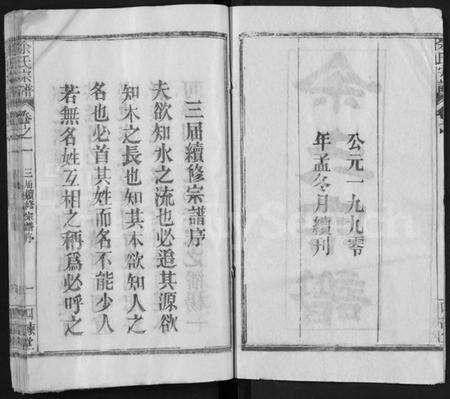 公元一九九零
年孟冬月續刊
三届續修宗譜序
夫欲知水之流也必追其源欲
知木之長也知其本欲知人之
名也必首其姓而名不能少人
若無名姓互相之稱爲必呼之
余氏宗譜
卷之一
三届續修宗譜序
一
四諫堂